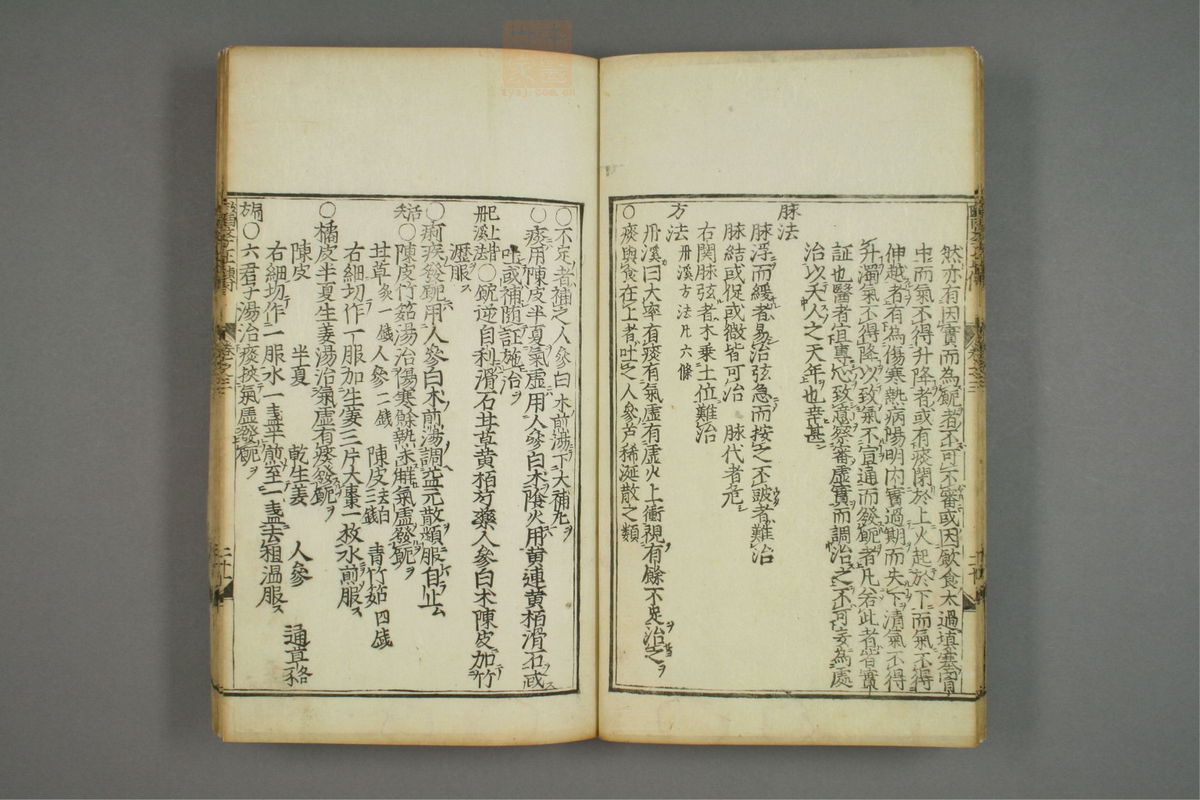 然亦有因實而為呃者不可不審或因飲食太過填塞胷
中而氣不得升降者或有痰閉於上火起於下而氣不得
伸越者有為傷寒熱病陽明内實過期而失下清氣不得
升濁氣不得降以致氣不宣通而發呃者凡若此者皆實
証也醫者宜專心致意察審虚實而調治之不可妄為處
治以夭人之天年也幸甚
脉法
脉浮而緩者易治弦急而按之不皷者難治
脉結或促或微皆可治 脉代者危
右関脉弦者木乗土位難治
方法 丹溪方法凡六條
丹溪曰大率有痰有氣虚有虚火上衝視有餘不足治之
○痰與食在上者吐之人參芦稀涎散之類
○不足者補之人參白术煎湯下大補丸
○痰用陳皮半夏氣虚用人參白术陰火用黄連黄栢滑石或
吐或補随証施治
丹溪活法 ○呃逆自利滑石甘草黄栢芍藥人參白术陳皮加竹
瀝服
○痢疾發呃用人參白术煎湯調益元散頻服自止
○陳皮竹茹湯治傷寒餘熱未解氣虚發呃
甘草炙一錢 人參二錢 陳皮去白三錢 青竹茹四錢
右細切作一服加生姜三片大棗一枚水煎服
○橘皮半夏生姜湯治氣虚有痰發呃
陳皮 半夏 乾生姜 人參 通草各
右細切作一服水一盞半煎至一盞去粗温服
局方 ○六君子湯治痰挾氣虚發呃